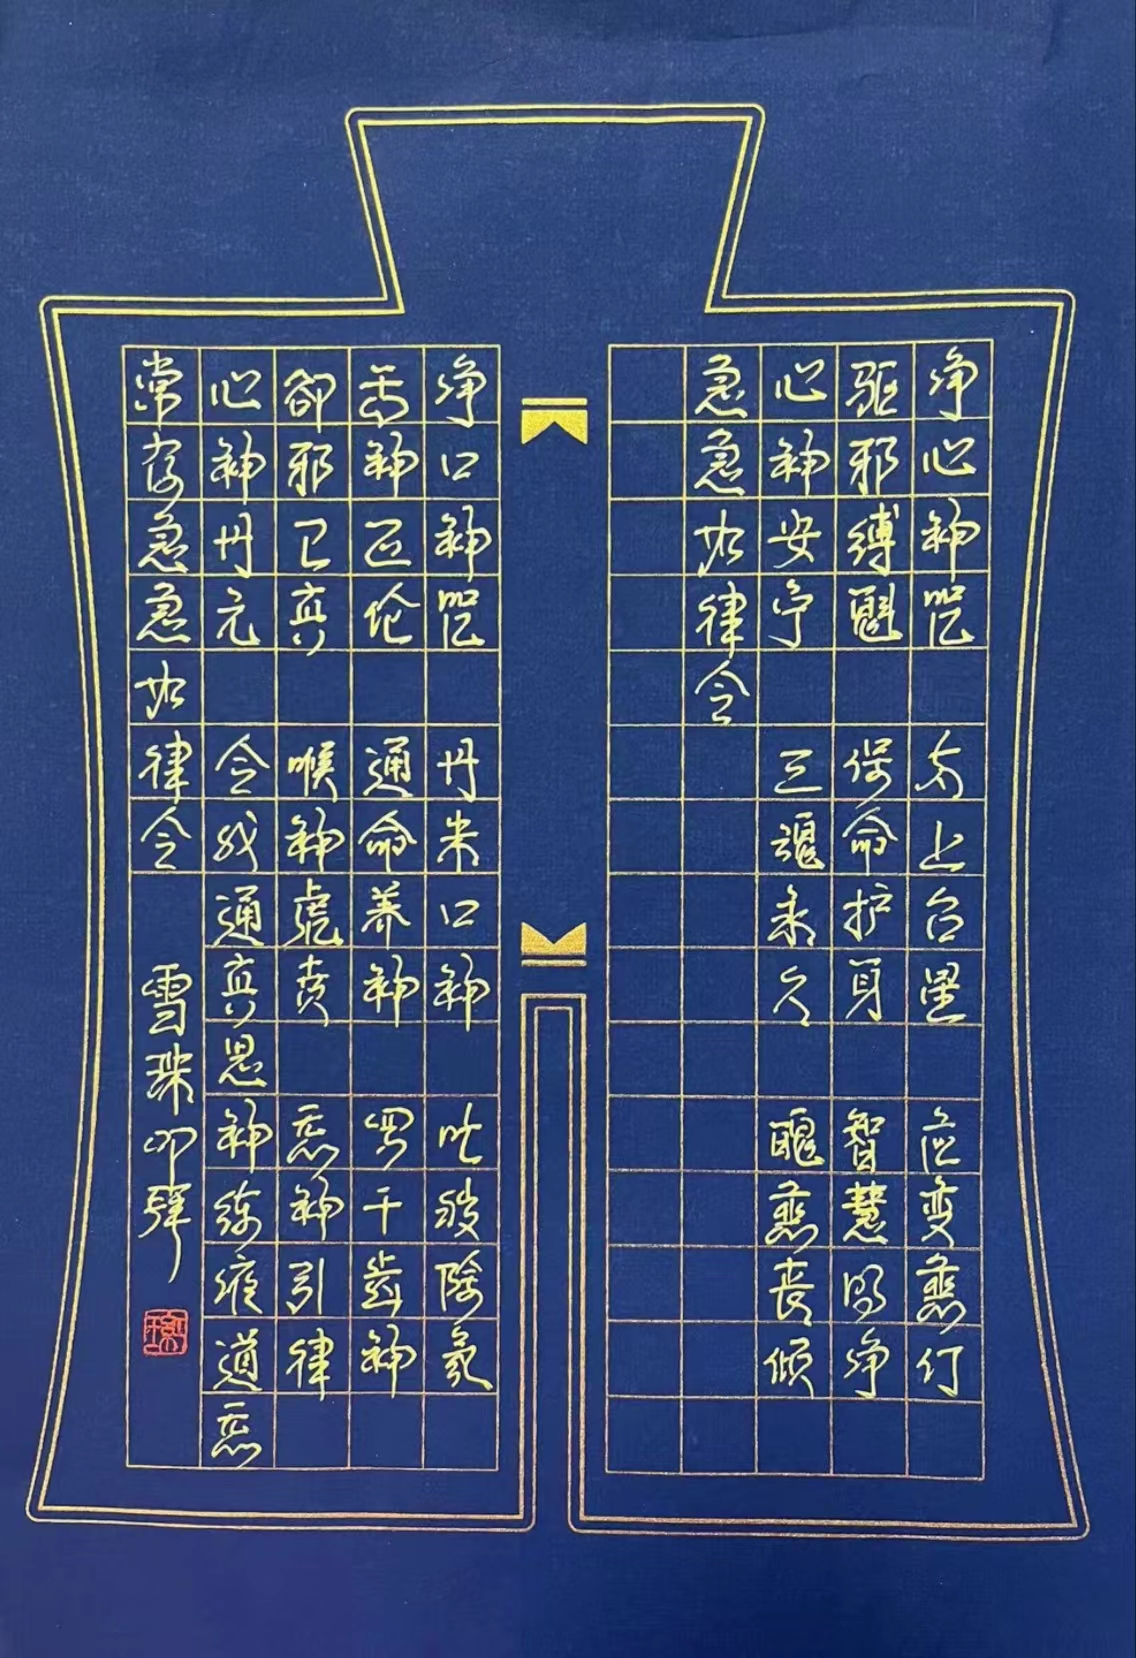 净心神咒 太上台星 应变無仃
驱邪缚魅 保命护身 智慧明净
心神安宁 三魂永久 魄無丧倾
急急如律令
净口神咒 丹朱口神 吐秽除氛
舌神正伦 通命养神 罗千齿神
卻邪卫真 喉神虎贲 炁神引律
心神丹元 令我通真思神练液道炁
常存急急如律令 雪珠叩拜